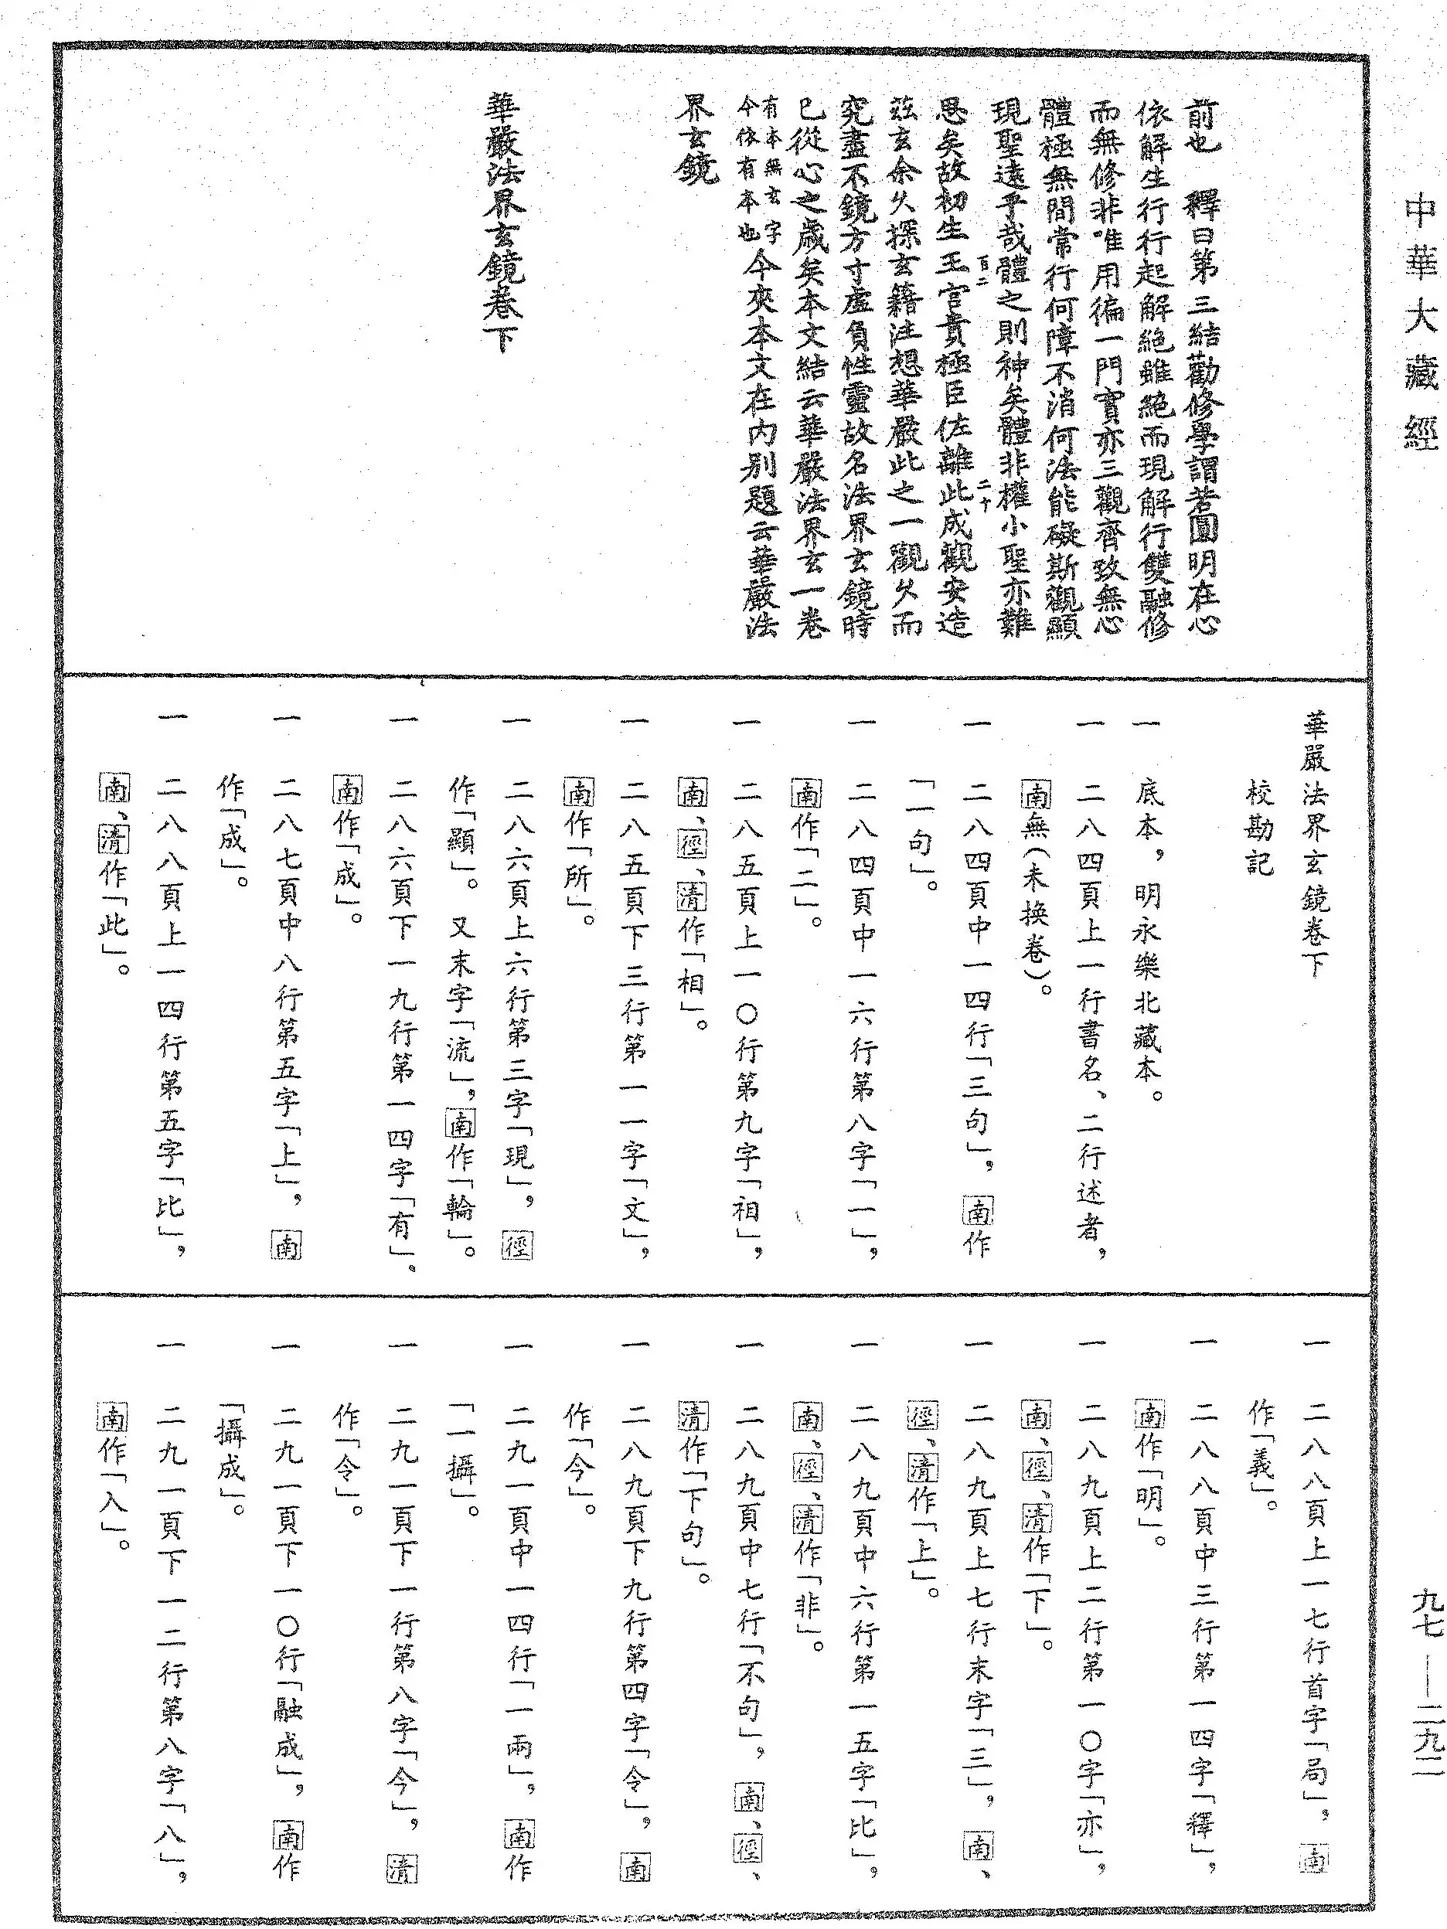 中華大藏經
前也　釋曰第三結勸修學謂若圓明在心
依解生行行起解絕雖絕而現解行雙融修
而無修非唯用徧一門實亦三觀齊致無心
體極無間常行何障不消何法能礙斯觀顯
現聖遠乎哉體之則神矣體非權小聖亦難
思矣故初生王宮貴極臣佐離此成觀安造
茲玄余久探玄籍注想華嚴此之一觀久而
究盡不鏡方寸虛負性靈故名法界玄鏡時
已從心之歲矣本文結云華嚴法界玄一卷
有本無玄字
今依有本也
今夾本文在內別題云華嚴法
界玄鏡
百二
二十
華嚴法界玄鏡卷下
華嚴法界玄鏡卷下
校勘記
一　底本，明永樂北藏本。
一　二八四頁上一行書名、二行述者，
南無（未換卷）。
一　二八四頁中一四行「三句」，南作
「一句」。
一　二八四頁中一六行第八字「一」，
南作「二」。
一　二八五頁上一〇行第九字「祖」，
南、徑、清作「相」。
一　二八五頁下三行第一一字「文」，
南作「所」。
一　二八六頁上六行第三字「現」，徑
作「顯」。又末字「流」，南作「輪」。
一　二八六頁下一九行第一四字「有」，
南作「成」。
一　二八七頁中八行第五字「上」，南
作「成」。
一　二八八頁上一四行第五字「比」，
南、清作「此」。
一　二八八頁上一七行首字「局」，南
作「義」。
一　二八八頁中三行第一四字「釋」，
南作「明」。
一　二八九頁上二行第一〇字「亦」，
南、徑、清作「下」。
一　二八九頁上七行末字「三」，南、
徑、清作「上」。
一　二八九頁中六行第一五字「比」，
南、徑、清作「非」。
一　二八九頁中七行「不句」，南、徑、
清作「下句」。
一　二八九頁下九行第四字「令」，南
作「今」。
一　二九一頁中一四行「一兩」，南作
「一攝」。
一　二九一頁下一行第八字「今」，清
作「令」。
一　二九一頁下一〇行「融成」，南作
「攝成」。
一　二九一頁下一二行第八字「八」，
南作「入」。
九七—二九二